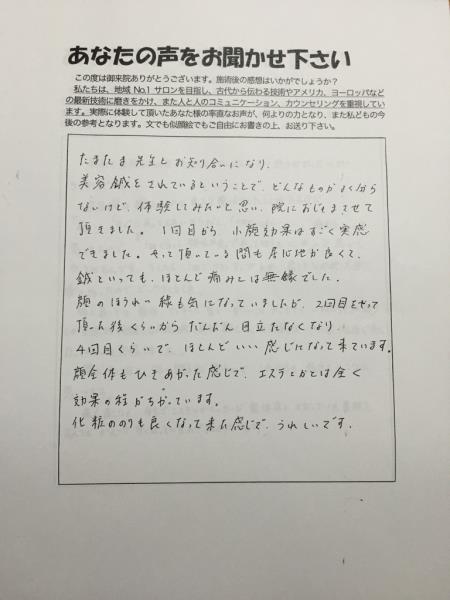 あなたの声をお聞かせ下さい
この度は御来院ありがとうございます。施術後の感想はいかがでしょうか？
私たちは、地域 No.1 サロンを目指し、古代から伝わる技術やアメリカ、ヨーロッパなど
の最新技術に磨きをかけ、また人と人のコミュニケーション、カウンセリングを重視してい
ます。実際に体験して頂いたあなた様の率直なお声が、何よりの力となり、また私どもの今
後の参考となります。文でも似顔絵でもご自由にお書きの上、お送り下さい。
たまたま先生とお知り合いになり、
美容鍼をされているということで、どんなものかよく分から
ないけど、体験してみたいと思い、院におじゃまさせて
頂きました。1回目から 小顔効果はすごく実感
できました。やって頂いている間も居心地が良くて、
鍼といっても、ほとんど痛みとは無縁でした。
顔のほうれい線も気になっていましたが、2回目をやって
頂いた後くらいからだんだん目立たなくなり、
4回目くらいで、ほとんどいい感じになって来ています。
顔全体もひきあがった感じで、エステとかとは全く
効果の程がちがっています。
化粧ののりも良くなって来た感じで、うれしいです。